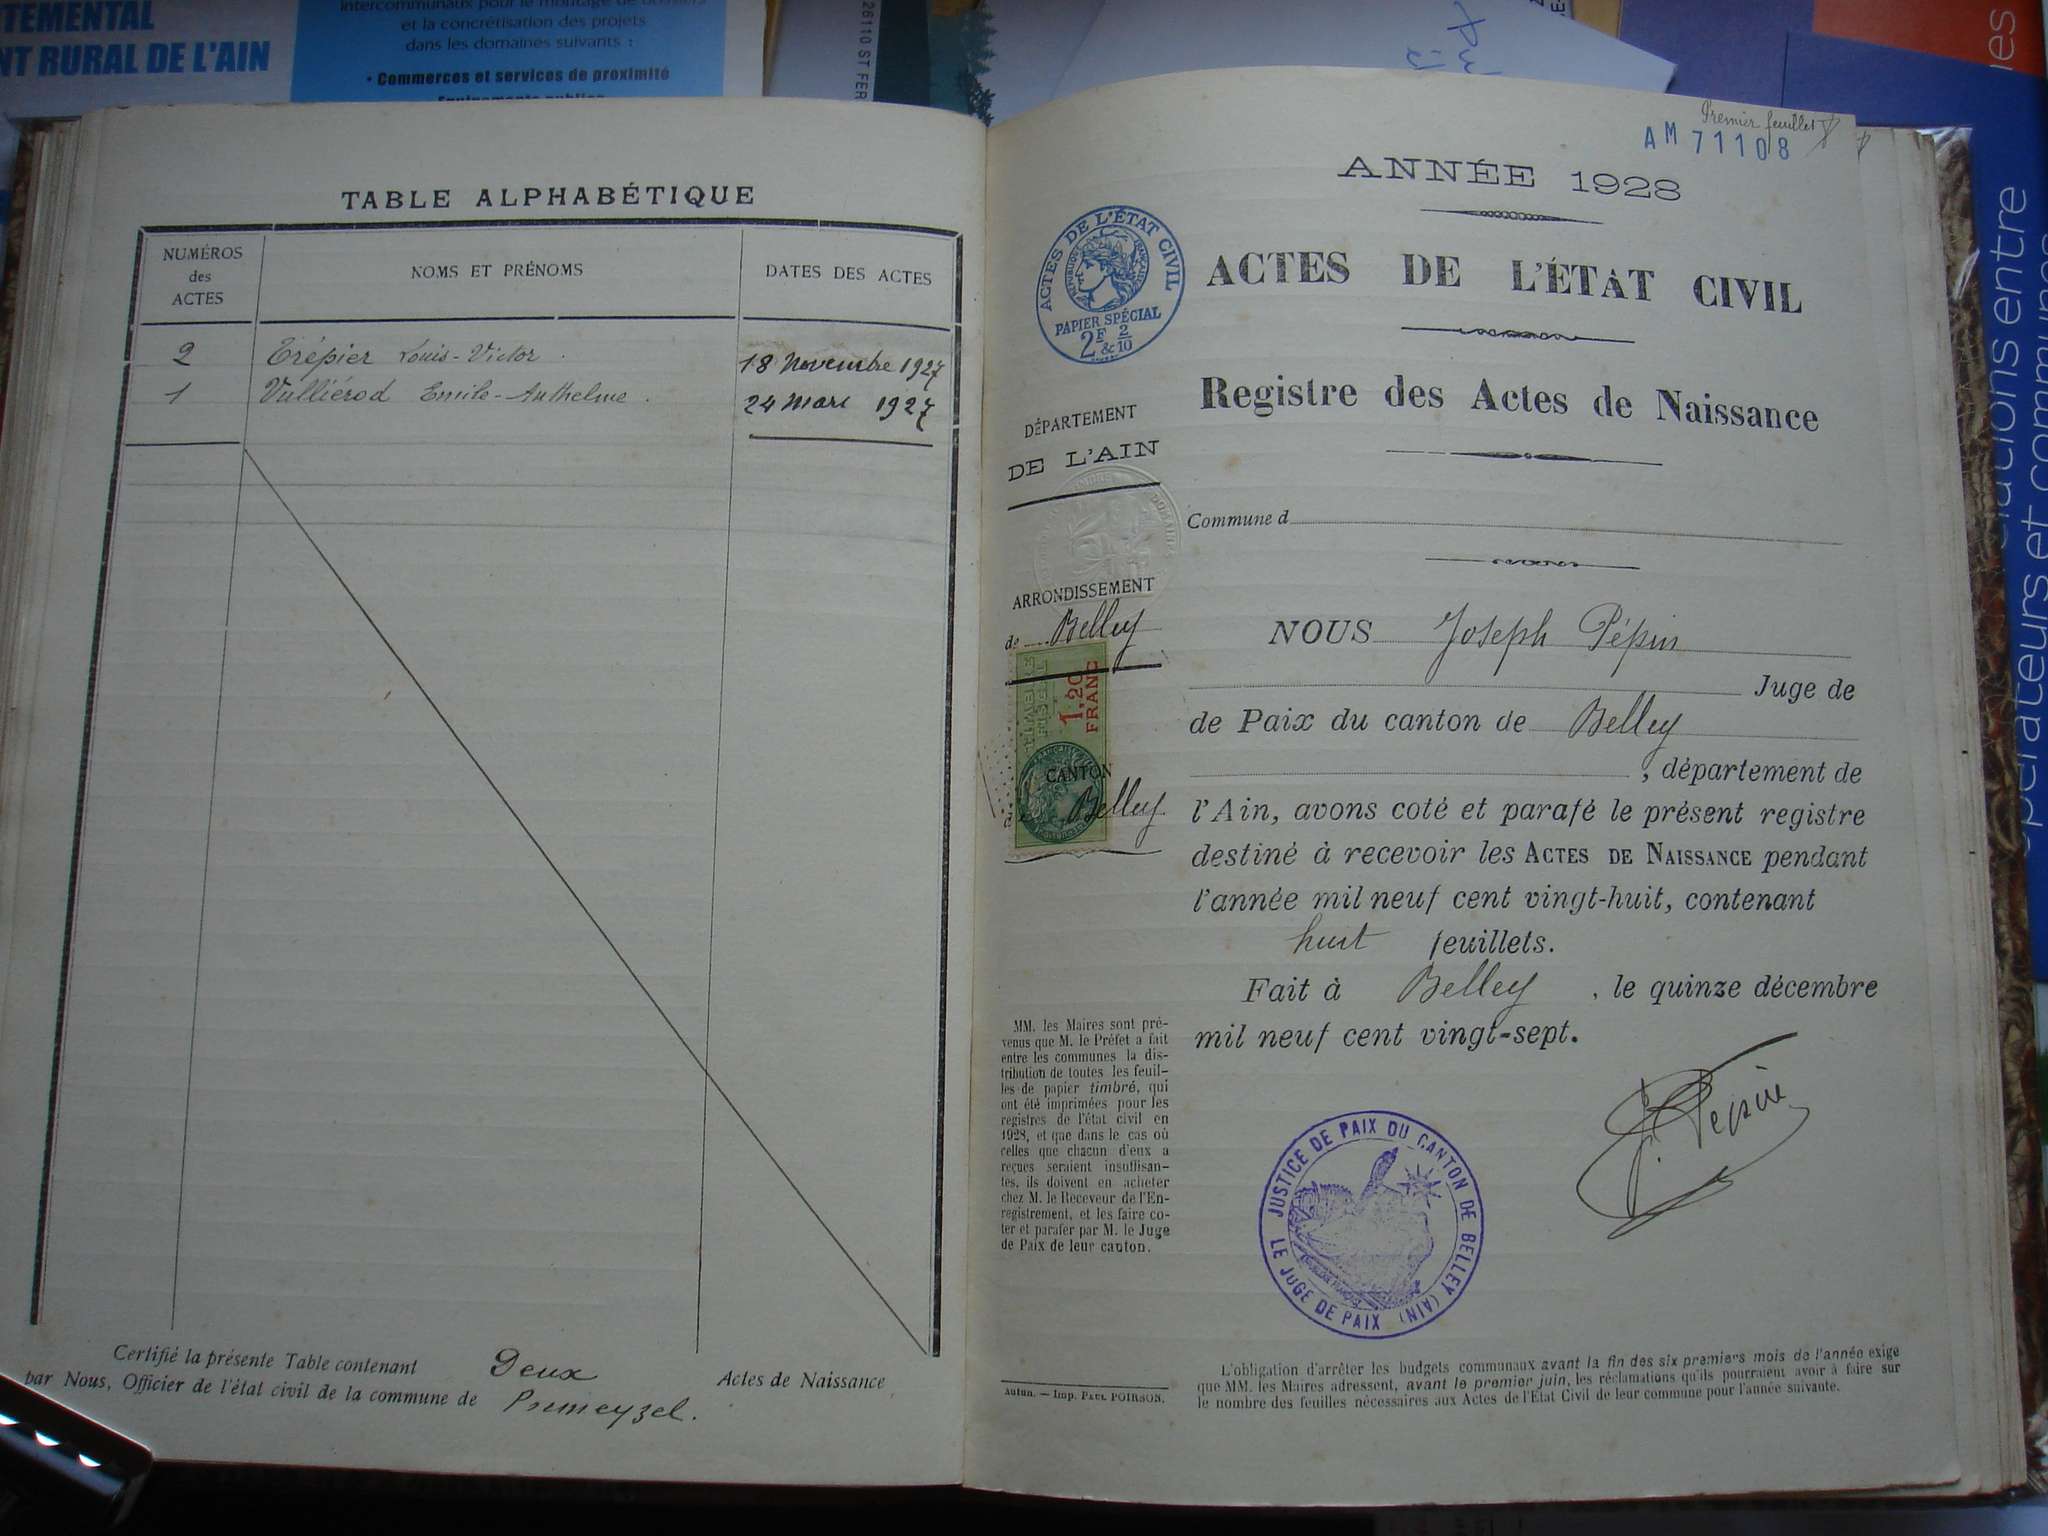 TEMENTAL
NT RURAL DE L'AIN
intercommunaux pour le montage de dossiers
et la concrétisation des projets
dans les domaines suivants :
• Commerces et services de proximité
Equipements publics
26110 ST FER
TABLE ALPHABÉTIQUE
NUMÉROS des ACTES
NOMS ET PRÉNOMS
DATES DES ACTES
2 Trépier Louis-Victor. 18 Novembre 1927
1 Vulliérod Emile-Anthelme. 24 Mars 1927
Certifié la présente Table contenant Deux Actes de Naissance
par Nous, Officier de l'état civil de la commune de Premeyzel.
Premier feuillet
AM 71108
ANNÉE 1928
ACTES DE L'ÉTAT CIVIL
RÉPUBLIQUE FRANÇAISE
PAPIER SPÉCIAL
2F & 2/10
ACTES DE L'ÉTAT CIVIL
Registre des Actes de Naissance
DÉPARTEMENT
DE L'AIN
Commune d
ARRONDISSEMENT
de Belley
1,20
FRANC
CANTON
de Belley
NOUS Joseph Pépin
Juge de
de Paix du canton de Belley
, département de
l'Ain, avons coté et parafé le présent registre
destiné à recevoir les ACTES DE NAISSANCE pendant
l'année mil neuf cent vingt-huit, contenant
huit feuillets.
Fait à Belley, le quinze décembre
mil neuf cent vingt-sept.
J. Pépin
MM. les Maires sont pré-
venus que M. le Préfet a fait
entre les communes la dis-
tribution de toutes les feuil-
les de papier timbré, qui
ont été imprimées pour les
registres de l'état civil en
1928, et que dans le cas où
celles que chacun d'eux a
reçues seraient insuffisan-
tes, ils doivent en acheter
chez M. le Receveur de l'En-
registrement, et les faire co-
ter et parafer par M. le Juge
de Paix de leur canton.
JUSTICE DE PAIX DU CANTON DE BELLEY (AIN)
LE JUGE DE PAIX
Autun. — Imp. PAUL POIRSON.
L'obligation d'arrêter les budgets communaux avant la fin des six premiers mois de l'année exige
que MM. les Maires adressent, avant le premier juin, les réclamations qu'ils pourraient avoir à faire sur
le nombre des feuilles nécessaires aux Actes de l'Etat Civil de leur commune pour l'année suivante.